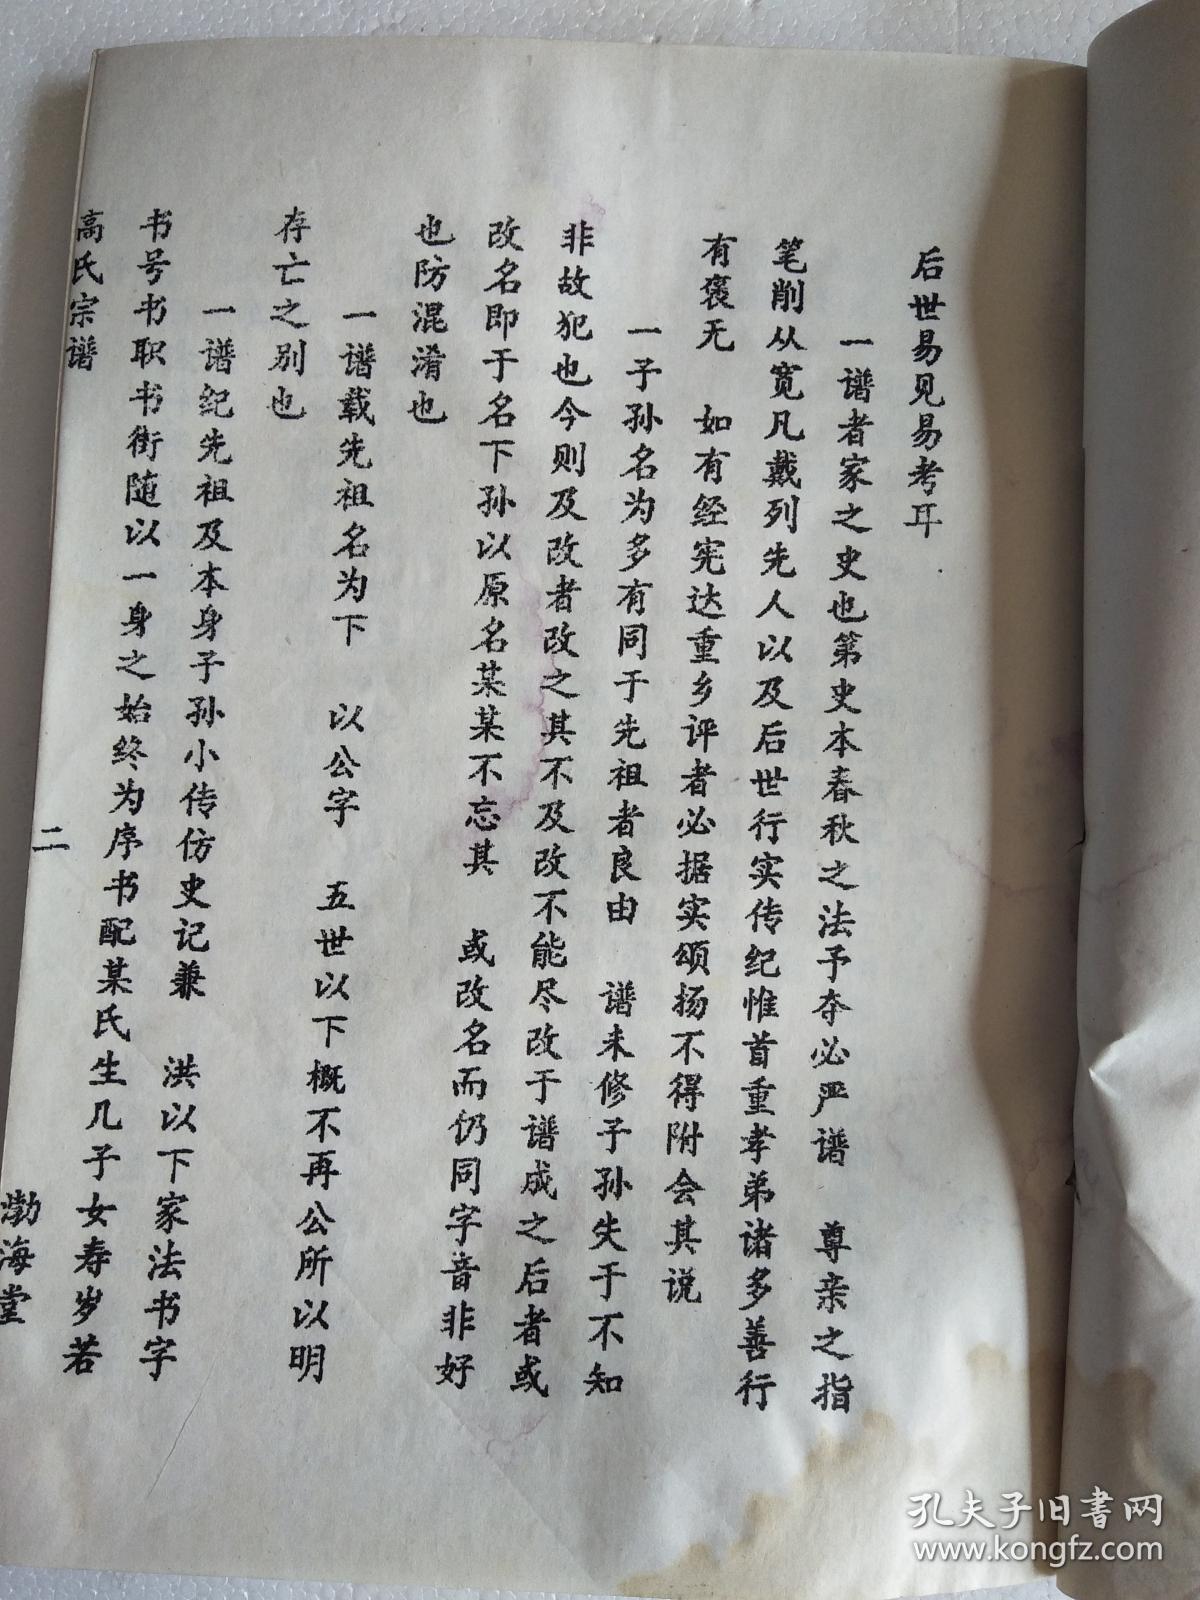 后世易见易考耳
一谱者家之史也第史本春秋之法予夺必严谱 尊亲之指
笔削从宽凡戴列先人以及后世行实传纪惟首重孝弟诸多善行
有褒无 如有经宪达重乡评者必据实颂扬不得附会其说
一子孙名为多有同于先祖者良由 谱未修子孙失于不知
非故犯也今则及改者改之其不及改不能尽改于谱成之后者或
改名即于名下孙以原名某某不忘其 或改名而仍同字音非好
也防混淆也
一谱载先祖名为下 以公字 五世以下概不再公所以明
存亡之别也
一谱纪先祖及本身子孙小传仿史记兼 洪以下家法书字
书号书职书街随以一身之始终为序书配某氏生几子女寿岁若
高氏宗谱 二 渤海堂
孔夫子旧书网
www.kongfz.com